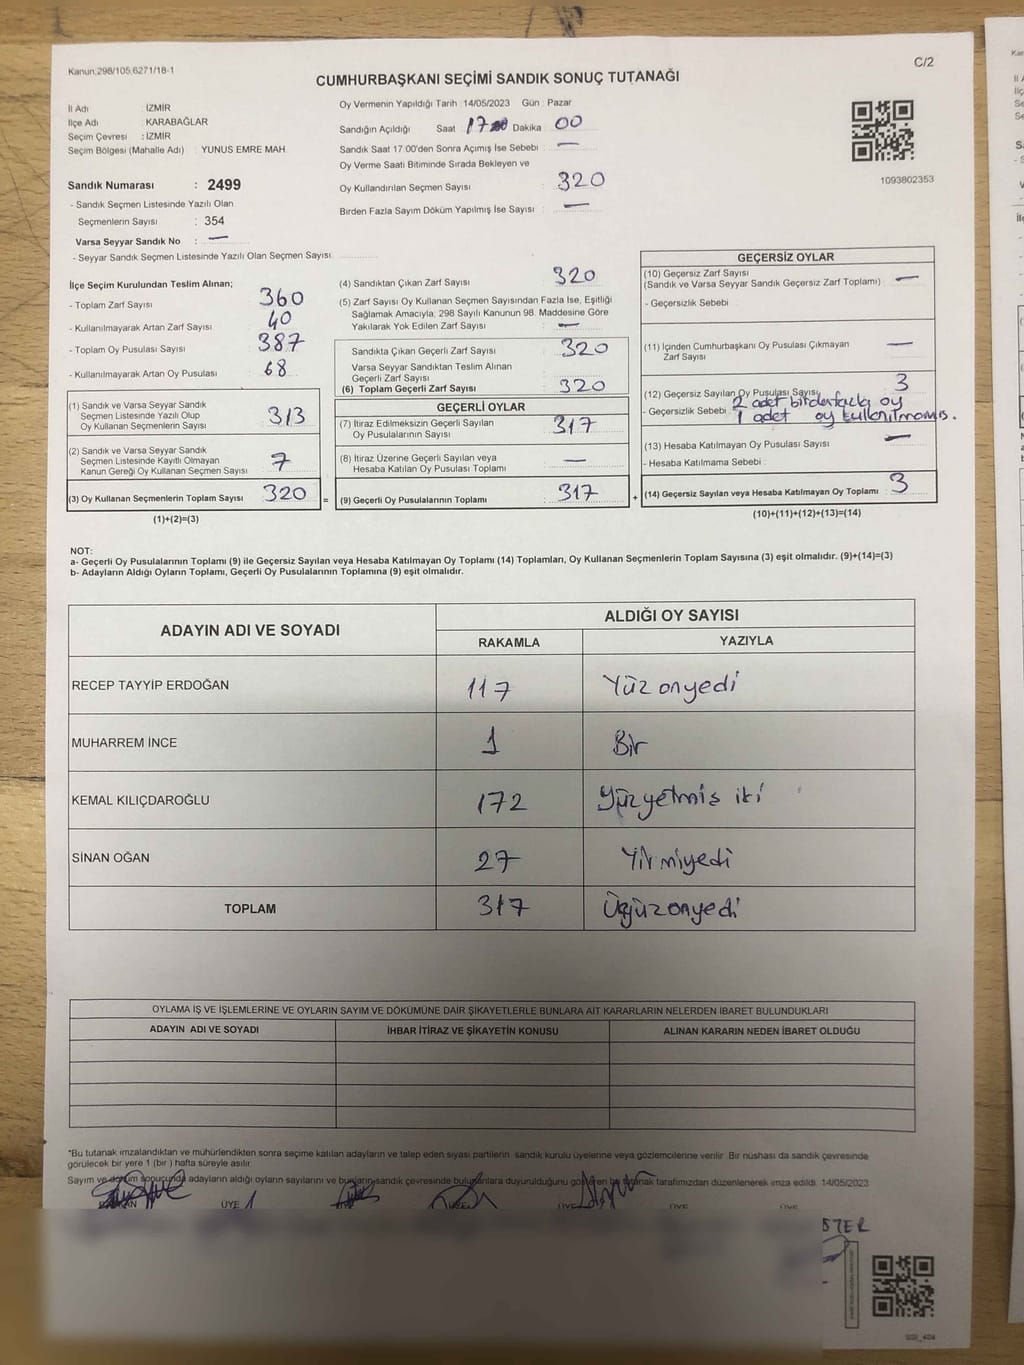 Kanun.298/105,6271/18-1
C/2
CUMHURBAŞKANI SEÇİMİ SANDIK SONUÇ TUTANAĞI
İl Adı : İZMİR
İlçe Adı : KARABAĞLAR
Seçim Çevresi : İZMİR
Seçim Bölgesi (Mahalle Adı) : YUNUS EMRE MAH.
Sandık Numarası : 2499
- Sandık Seçmen Listesinde Yazılı Olan
Seçmenlerin Sayısı : 354
Varsa Seyyar Sandık No : —
- Seyyar Sandık Seçmen Listesinde Yazılı Olan Seçmen Sayısı
Oy Vermenin Yapıldığı Tarih : 14/05/2023 Gün : Pazar
Sandığın Açıldığı Saat 17 Dakika 00
Sandık Saat 17.00'den Sonra Açımış İse Sebebi : —
Oy Verme Saati Bitiminde Sırada Bekleyen ve
Oy Kullandırılan Seçmen Sayısı : 320
Birden Fazla Sayım Döküm Yapılmış İse Sayısı : —
1093802353
İlçe Seçim Kurulundan Teslim Alınan;
- Toplam Zarf Sayısı 360
- Kullanılmayarak Artan Zarf Sayısı 40
- Toplam Oy Pusulası Sayısı 387
- Kullanılmayarak Artan Oy Pusulası 68
(1) Sandık ve Varsa Seyyar Sandık
Seçmen Listesinde Yazılı Olup
Oy Kullanan Seçmenlerin Sayısı 313
(2) Sandık ve Varsa Seyyar Sandık
Seçmen Listesinde Kayıtlı Olmayan
Kanun Gereği Oy Kullanan Seçmen Sayısı 7
(3) Oy Kullanan Seçmenlerin Toplam Sayısı 320 =
(1)+(2)=(3)
(4) Sandıktan Çıkan Zarf Sayısı 320
(5) Zarf Sayısı Oy Kullanan Seçmen Sayısından Fazla İse, Eşitliği
Sağlamak Amacıyla; 298 Sayılı Kanunun 98. Maddesine Göre
Yakılarak Yok Edilen Zarf Sayısı : —
Sandıkta Çıkan Geçerli Zarf Sayısı 320
Varsa Seyyar Sandıktan Teslim Alınan
Geçerli Zarf Sayısı
(6) Toplam Geçerli Zarf Sayısı 320
GEÇERLİ OYLAR
(7) İtiraz Edilmeksizin Geçerli Sayılan
Oy Pusulalarının Sayısı 317
(8) İtiraz Üzerine Geçerli Sayılan veya
Hesaba Katılan Oy Pusulası Toplamı —
(9) Geçerli Oy Pusulalarının Toplamı 317 +
GEÇERSİZ OYLAR
(10) Geçersiz Zarf Sayısı
(Sandık ve Varsa Seyyar Sandık Geçersiz Zarf Toplamı) : —
- Geçersizlik Sebebi :
(11) İçinden Cumhurbaşkanı Oy Pusulası Çıkmayan
Zarf Sayısı —
(12) Geçersiz Sayılan Oy Pusulası Sayısı 3
2 adet birdenfazla oy
- Geçersizlik Sebebi 1 adet oy kullanılmamış.
(13) Hesaba Katılmayan Oy Pusulası Sayısı —
- Hesaba Katılmama Sebebi :
(14) Geçersiz Sayılan veya Hesaba Katılmayan Oy Toplamı : 3
(10)+(11)+(12)+(13)=(14)
NOT:
a- Geçerli Oy Pusulalarının Toplamı (9) ile Geçersiz Sayılan veya Hesaba Katılmayan Oy Toplamı (14) Toplamları, Oy Kullanan Seçmenlerin Toplam Sayısına (3) eşit olmalıdır. (9)+(14)=(3)
b- Adayların Aldığı Oyların Toplamı, Geçerli Oy Pusulalarının Toplamına (9) eşit olmalıdır.
ADAYIN ADI VE SOYADI
ALDIĞI OY SAYISI
RAKAMLA YAZIYLA
RECEP TAYYİP ERDOĞAN 117 Yüz onyedi
MUHARREM İNCE 1 Bir
KEMAL KILIÇDAROĞLU 172 Yüzyetmiş iki
SİNAN OĞAN 27 Yirmiyedi
TOPLAM 317 Üçyüzonyedi
OYLAMA İŞ VE İŞLEMLERİNE VE OYLARIN SAYIM VE DÖKÜMÜNE DAİR ŞİKAYETLERLE BUNLARA AİT KARARLARIN NELERDEN İBARET BULUNDUKLARI
ADAYIN ADI VE SOYADI İHBAR İTİRAZ VE ŞİKAYETİN KONUSU ALINAN KARARIN NEDEN İBARET OLDUĞU
*Bu tutanak imzalandıktan ve mühürlendikten sonra seçime katılan adayların ve talep eden siyasi partilerin sandık kurulu üyelerine veya gözlemcilerine verilir. Bir nüshası da sandık çevresinde
görülecek bir yere 1 (bir) hafta süreyle asılır.
Sayım ve döküm sonucunda adayların aldığı oyların sayılarını ve bunların sandık çevresinde bulunanlara duyurulduğunu gösteren bu tutanak tarafımızdan düzenlenerek imza edildi. 14/05/2023
ÜYE ÜYE ÜYE ÜYE